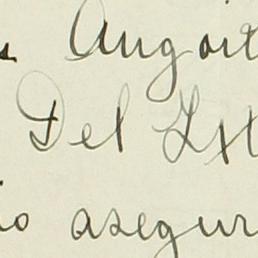 Angoit
Del Ext
io asegur